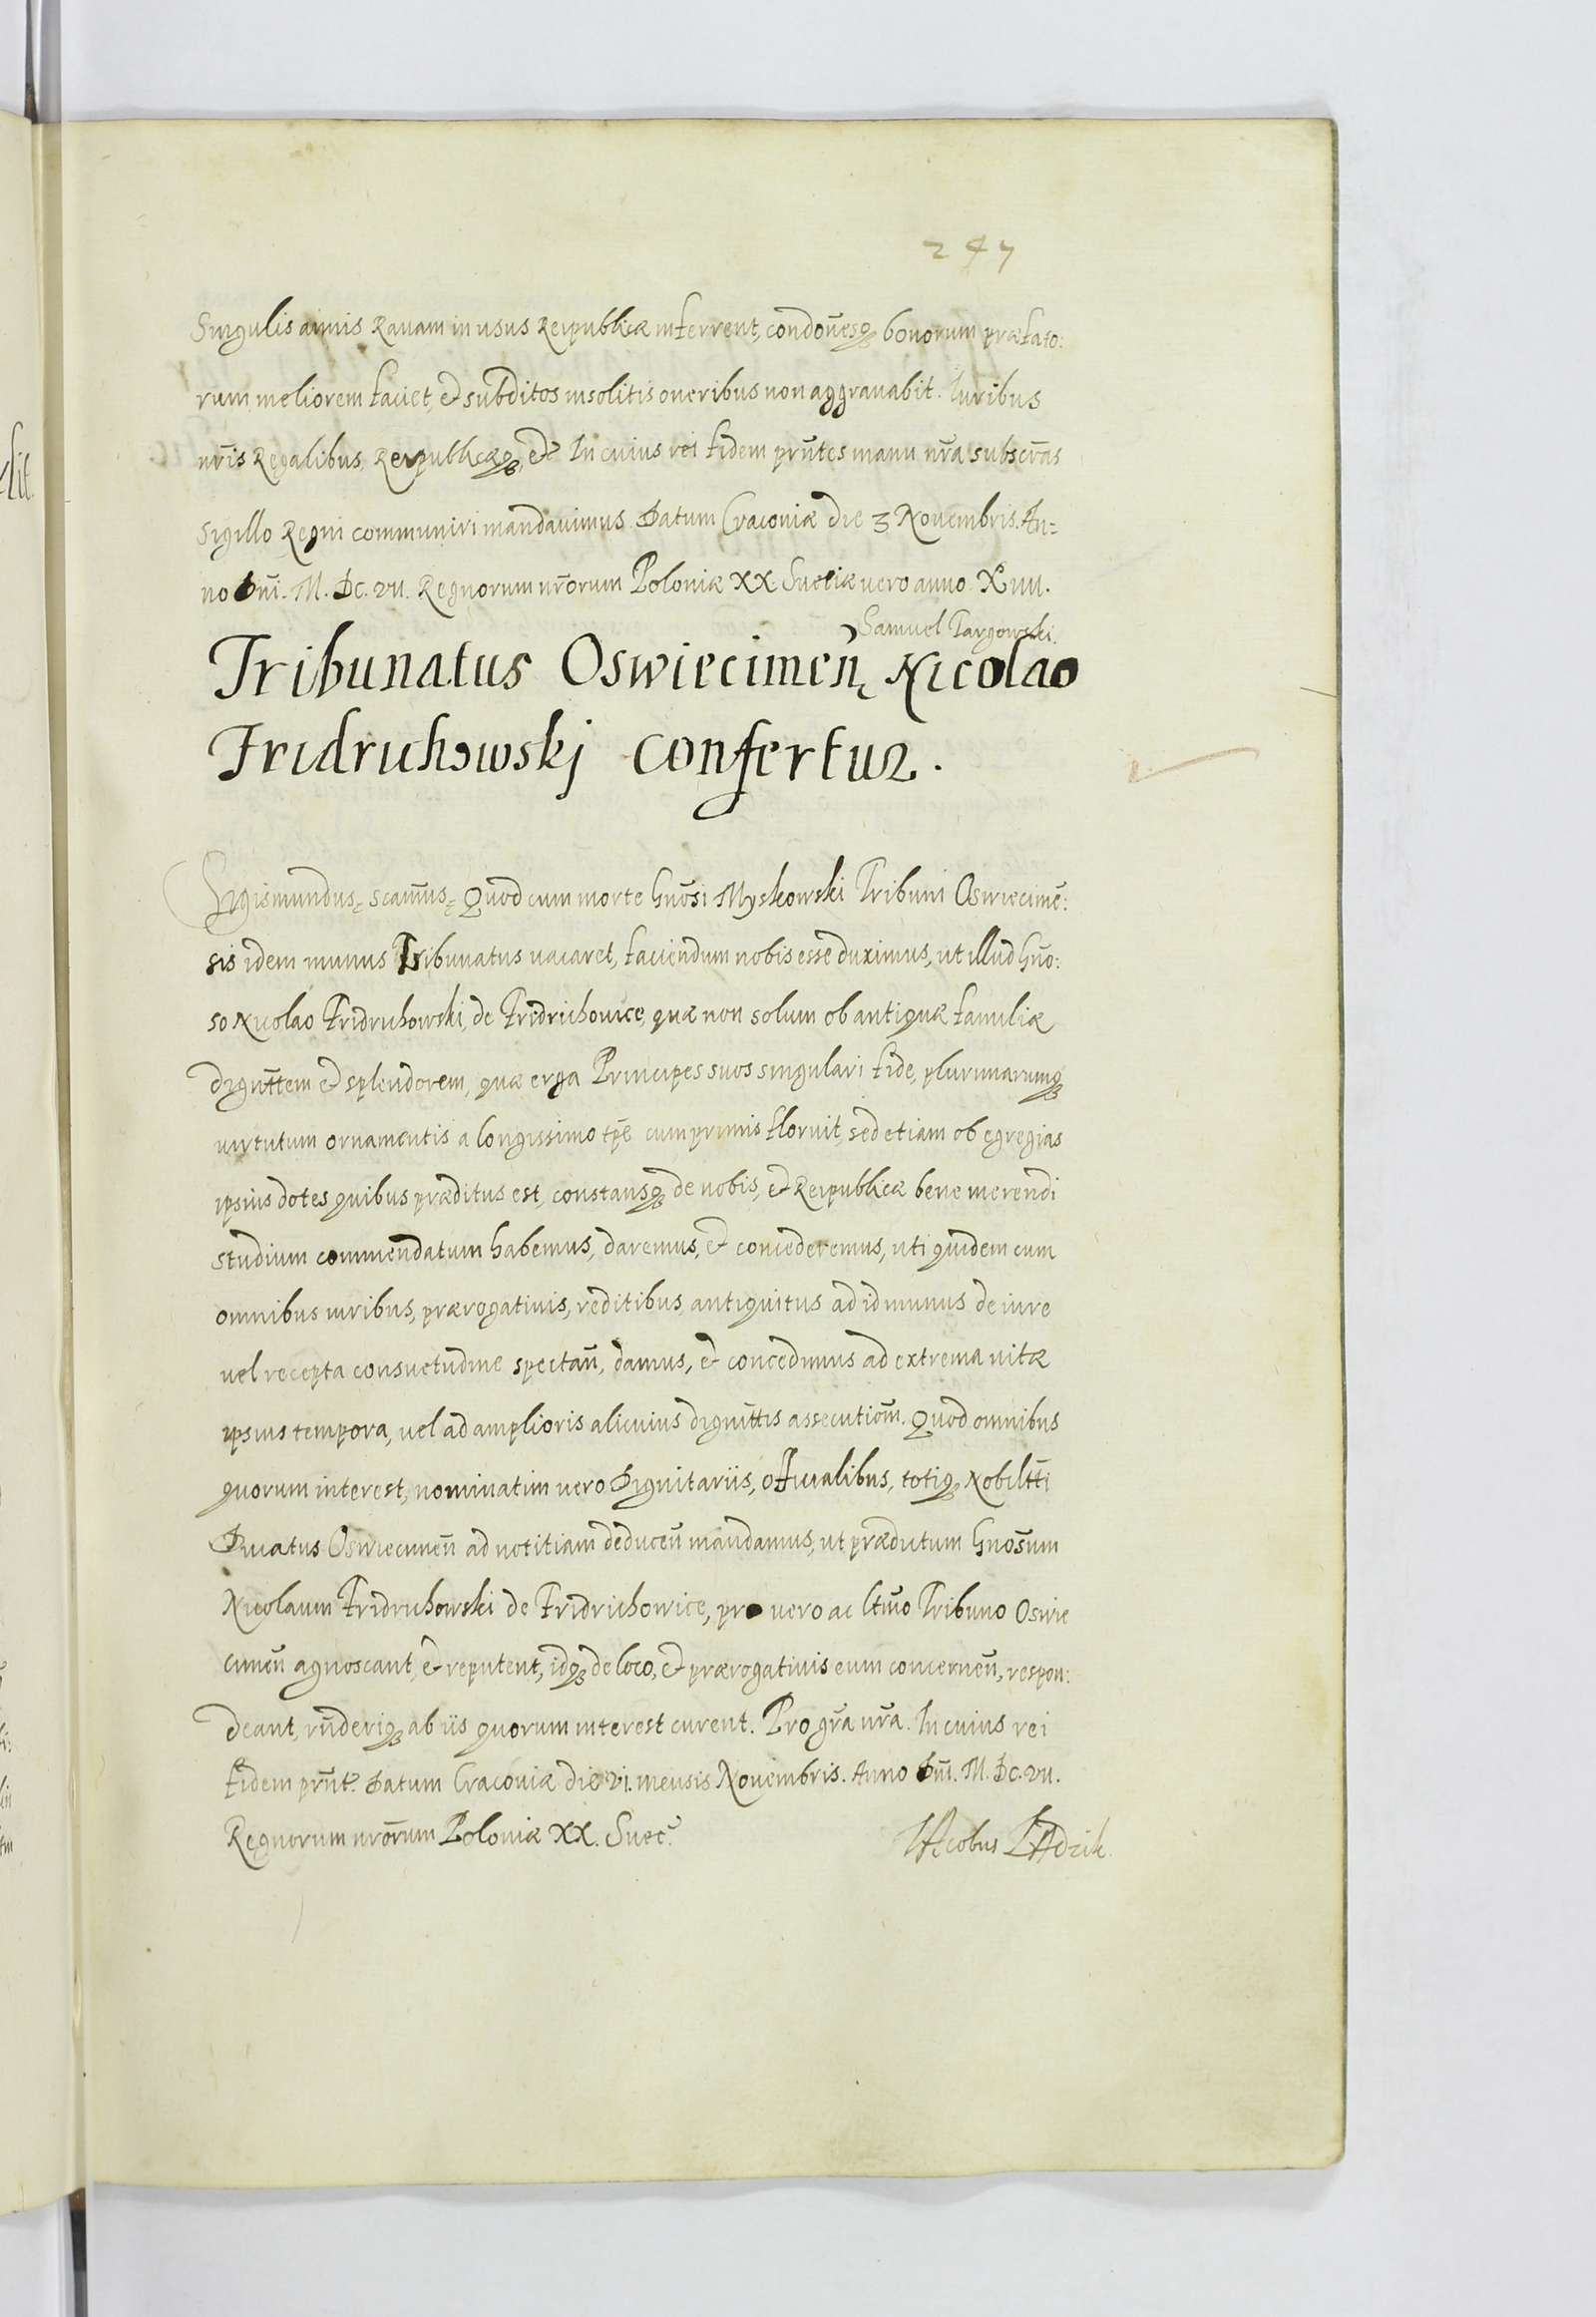 247
Singulis annis Rauam in usus Reipublicæ inferrent, condoñesq₃ bonorum præfato:
rum meliorem faciet, et subditos insolitis oneribus non aggravabit. Iuribus
nr̃is Regalibus, Reipublicæq₃, etc̃ In cuius rei fidem pn̄tes manu nr̃a subscr̃as
Sigillo Regni communiri mandavimus. Datum Cracoviæ die 3 Novembris. An=
no Dñi. M. Dc. vii. Regnorum nr̃orum Poloniæ XX. Suetiæ vero anno Xiiii.
Samuel Targowski.
Tribunatus Oswiecimeñ Nicolao
Fridrichowskj confertur.
Sigismundus, scam̃us, Quod cum morte Gnõsi Myskowski Tribuni Oswiecimẽ:
sis idem munus Tribunatus vacaret, faciendum nobis esse duximus, ut illud Gño:
so Nicolao Fridrichowski, de Fridrichowice, quæ non solum ob antiquæ familiæ
dignit̃tem et splendorem, quæ erga Principes suos singulari fide, plurimarumq₃
virtutum ornamentis a longissimo tp̃e cum primis floruit, sed etiam ob egregias
ipsius dotes quibus præditus est, constansq₃ de nobis, et Reipublicæ bene merendi
studium commendatum habemus, daremus, et concederemus, uti quidem cum
omnibus iuribus, prærogativis, reditibus, antiquitus ad id munus de iure
vel recepta consuetudine spectañ, damus, et concedimus ad extrema vitæ
ipsius tempora, vel ad amplioris alicuius dignit̃tis assecutiom̃. Quod omnibus
quorum interest, nominatim vero Dignitariis, officialibus, totiq₃ Nobilt̃ti
Ducatus Oswiecimeñ ad notitiam deduceñ mandamus, ut prædictum Gnõsum
Nicolaum Fridrichowski de Fridrichowice, pro vero ac ltĩmo Tribuno Oswie
cimeñ agnoscant, et reputent, idq₃ de loco, et prærogativis eum concerneñ, respon:
deant, rñderiq₃ ab iis quorum interest curent. Pro gr̃a nr̃a. In cuius rei
fidem pr̃nt̃. Datum Cracoviæ die vi. mensis Novembris. Anno Dñi. M. Dc. vii.
Regnorum nrõrum Poloniæ XX. Suec̃.
IAcobus ZAdzik.